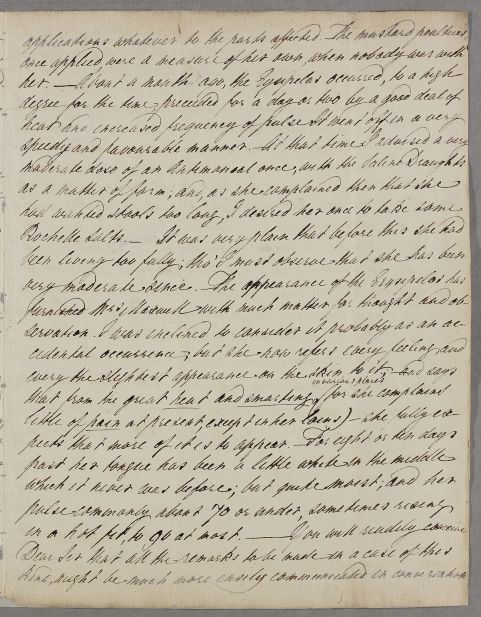 applications whatever to the parts affected. The mustard poultices,
once applied were a measure of her own, when nobody was with
her. — About a month ago, the Erysipelas occurred, to a high
degree for the time, preceded for a day or two by a good deal of
heat and increased frequency of pulse. It went off in a very
speedy and favourable manner. — At that time I advised a very
moderate dose of an Antimonial once, with the Saline Draughts
as a matter of form; and, as she complained then that she
had wanted stools too long, I desired her once to take some
Rochelle Salts. — It was very plain that before this she had
been living too fully; tho' I must observe that she has been
very moderate since. — The appearance of the Erysipelas has
furnished Mrs. Maxwell with much matter for thought and ob-
servation. I was inclined to consider it probably as an ac-
cidental occurrence; but she now refers every feeling and
every the slightest appearance on the skin to it; — and says
that from the great heat and smarting in various places (for she complains
little of pain at present except in her loins) — she fully ex-
pects that more of it is to appear. — For eight or ten days
past her tongue has been a little white in the middle
which it never was before; but quite moist; and her
pulse commonly about 70 or under, sometimes rising
in a hot fit, to 90 at most. — You will readily conceive
Dear Sir that all the remarks to be made in a case of this
kind, might be much more easily communicated in conversation